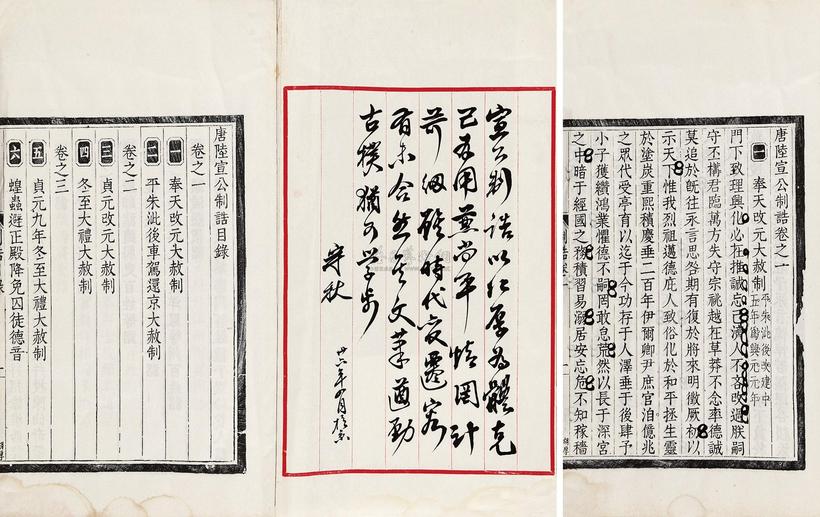 唐陸宣公制誥目錄
卷之一
一 奉天改元大赦制
二 平朱泚後車駕還京大赦制
卷之二
三 貞元改元大赦制
四 冬至大禮大赦制
卷之三
五 貞元九年冬至大禮大赦制
六 蝗蟲避正殿降免囚徒德音
宣公制誥以仁厚為體克
己為用兼尚平恃罔計
苛細雖時代變遷容
有未合然其文筆遒勁
古樸猶可學步
守秋
廿六年四月
唐陸宣公制誥卷之一
一 奉天改元大赦制
平朱泚後改建中
五年為興元元年
門下致理興化必在推誠忘己濟人不吝改過朕嗣
守丕構君臨萬方失守宗祧越在草莽不念率德誠
莫追於既往永言思咎期有復於將來明徵厥初以
示天下惟我烈祖邁德庇人致俗化於和平拯生靈
於塗炭重熙積慶垂二百年伊爾卿尹庶官洎億兆
之眾代受亭育以迄于今功存于人澤垂于後肆予
小子獲纘鴻業懼德不嗣罔敢怠荒然以長于深宮
之中暗于經國之務積習易溺居安忘危不知稼穡